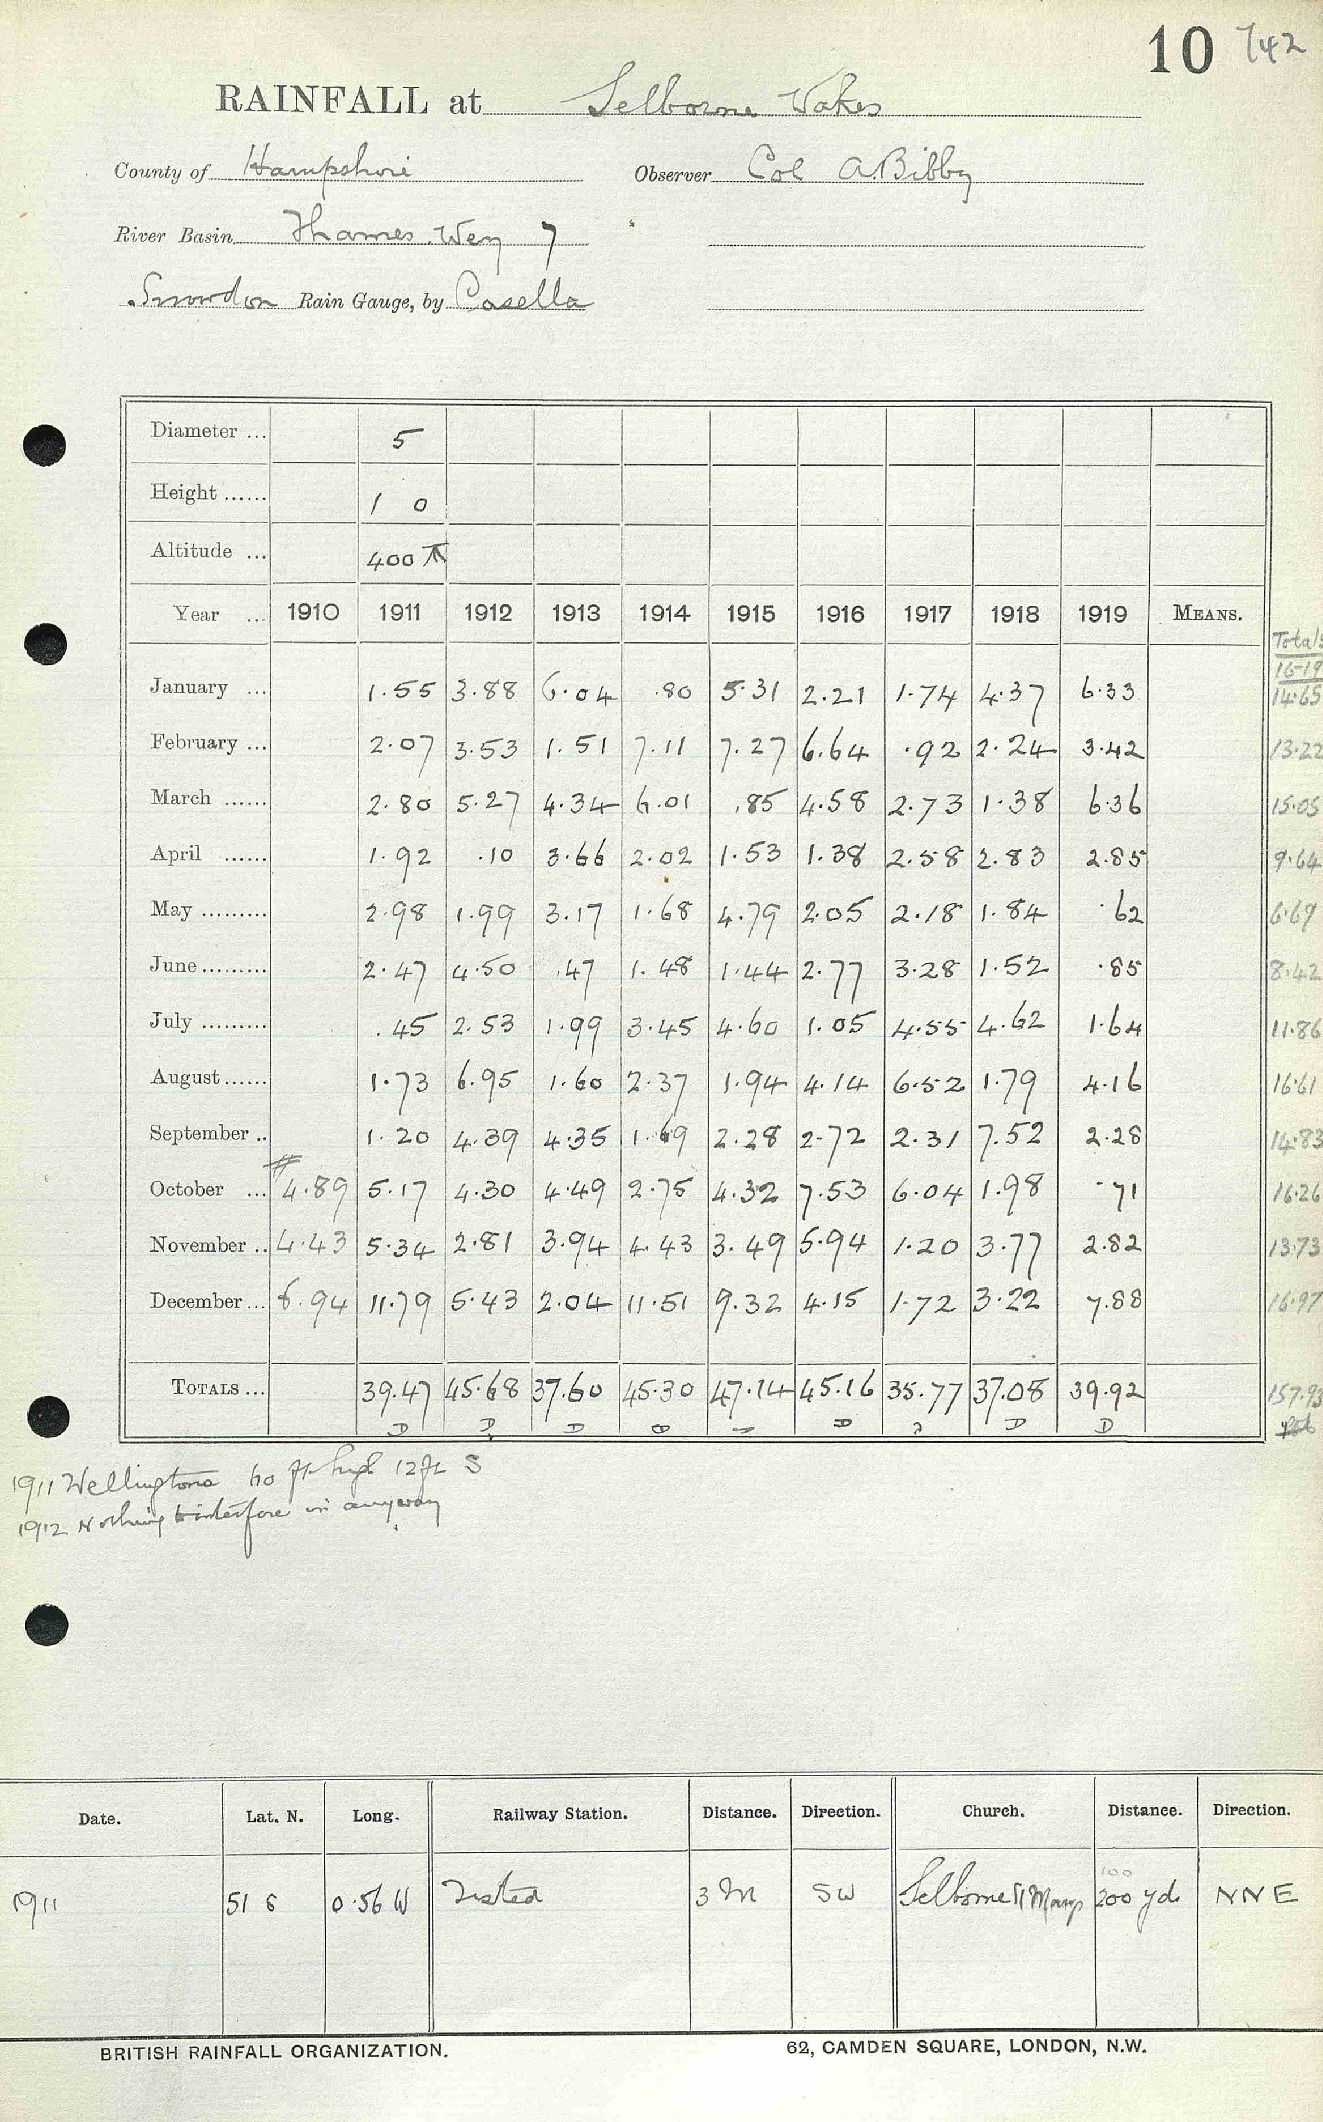 10 742
RAINFALL at Selborne Wakes
County of Hampshire Observer Col A Bibby
River Basin Thames. Wey 7
Snowdon Rain Gauge, by Casella
Diameter ... 5
Height ...... 1 0
Altitude ... 400
Year ... 1910 1911 1912 1913 1914 1915 1916 1917 1918 1919 MEANS.
Totals
16-19
January ... 1.55 3.88 6.04 .80 5.31 2.21 1.74 4.37 6.33 14.65
February ... 2.07 3.53 1.51 7.11 7.27 6.64 .92 2.24 3.42 13.22
March ...... 2.80 5.27 4.34 6.01 .85 4.58 2.73 1.38 6.36 15.05
April ...... 1.92 .10 3.66 2.02 1.53 1.38 2.58 2.83 2.85 9.64
May ......... 2.98 1.99 3.17 1.68 4.79 2.05 2.18 1.84 .62 6.69
June ......... 2.47 4.50 .47 1.48 1.44 2.77 3.28 1.52 .85 8.42
July ......... .45 2.53 1.99 3.45 4.60 1.05 4.55 4.62 1.64 11.86
August...... 1.73 6.95 1.60 2.37 1.94 4.14 6.52 1.79 4.16 16.61
September .. 1.20 4.39 4.35 1.69 2.28 2.72 2.31 7.52 2.28 14.83
October ... 4.89 5.17 4.30 4.49 2.75 4.32 7.53 6.04 1.98 .71 16.26
November .. 4.43 5.34 2.81 3.94 4.43 3.49 5.94 1.20 3.77 2.82 13.73
December... 6.94 11.79 5.43 2.04 11.51 9.32 4.15 1.72 3.22 7.88 16.97
TOTALS ... 39.47 45.68 37.60 45.30 47.14 45.16 35.77 37.08 39.92 157.93
1911 Wellingtonia 60 ft high 12ft S
1912 Nothing to interfere in anyway
Date. Lat. N. Long. Railway Station. Distance. Direction. Church. Distance. Direction.
100
1911 51 6 0.56 W Tisted 3 M SW Selborne St Marys 200 yds NNE
BRITISH RAINFALL ORGANIZATION. 62, CAMDEN SQUARE, LONDON, N.W.